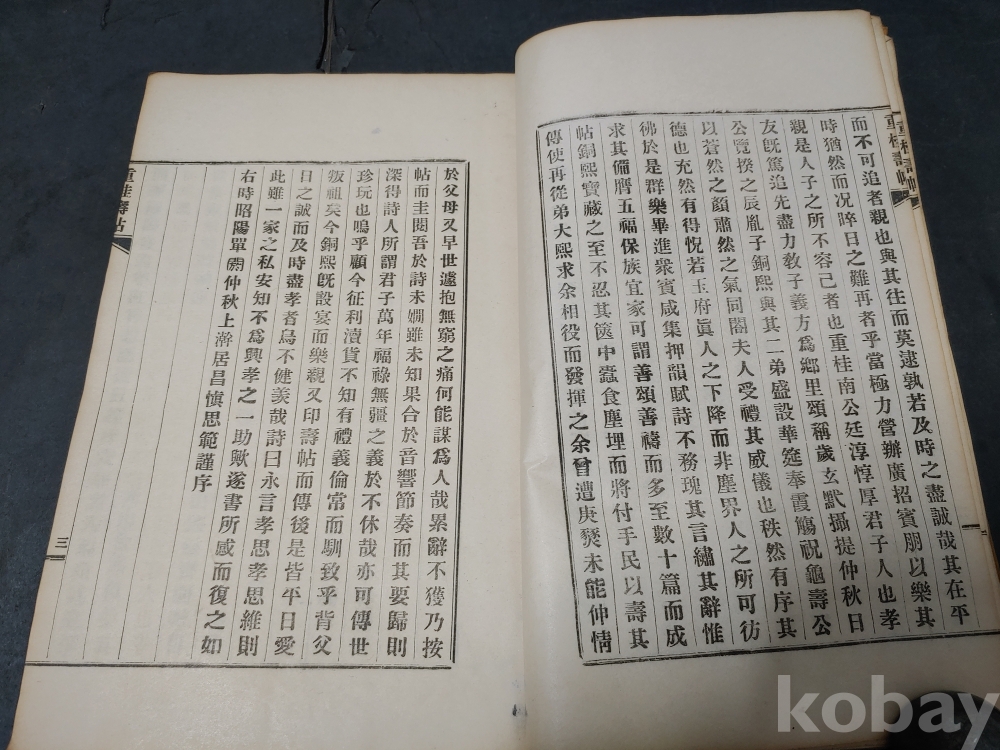 重桂壽帖
而不可追者親也與其往而莫逮孰若及時之盡誠哉其在平
時猶然而況晬日之難再者乎當極力營辦廣招賓朋以樂其
親是人子之所不容己者也重桂南公廷淳惇厚君子人也孝
友旣篤追先盡力敎子義方爲鄉里頌稱歲玄黓攝提仲秋日
公覽揆之辰胤子銅熙與其二弟盛設華筵奉霞觴祝龜壽公
以蒼然之顔肅然之氣同閤夫人受禮其威儀也秩然有序其
德也充然有得怳若玉府眞人之下降而非塵界人之所可彷
彿於是群樂畢進衆賓咸集押韻賦詩不務瑰其言繡其辭惟
求其備膺五福保族宜家可謂善頌善禱而多至數十篇而成
帖銅熙寶藏之至不忍其篋中蠹食塵埋而將付手民以壽其
傳使再從弟大熙求余相役而發揮之余曾遭庚燹未能伸情
於父母又早世遽抱無窮之痛何能謀爲人哉累辭不獲乃按
帖而圭閱吾於詩未嫺雖未知果合於音響節奏而其要歸則
深得詩人所謂君子萬年福祿無疆之義於不休哉亦可傳世
珍玩也嗚乎顧今征利瀆貨不知有禮義倫常而馴致乎背父
叛祖矣今銅熙旣設宴而樂親又印壽帖而傳後是皆平日愛
日之誠而及時盡孝者烏不健羨哉詩曰永言孝思孝思維則
此雖一家之私安知不爲興孝之一助歟遂書所感而復之如
右時昭陽單閼仲秋上澣居昌愼思範謹序
重桂壽帖
三
kobay